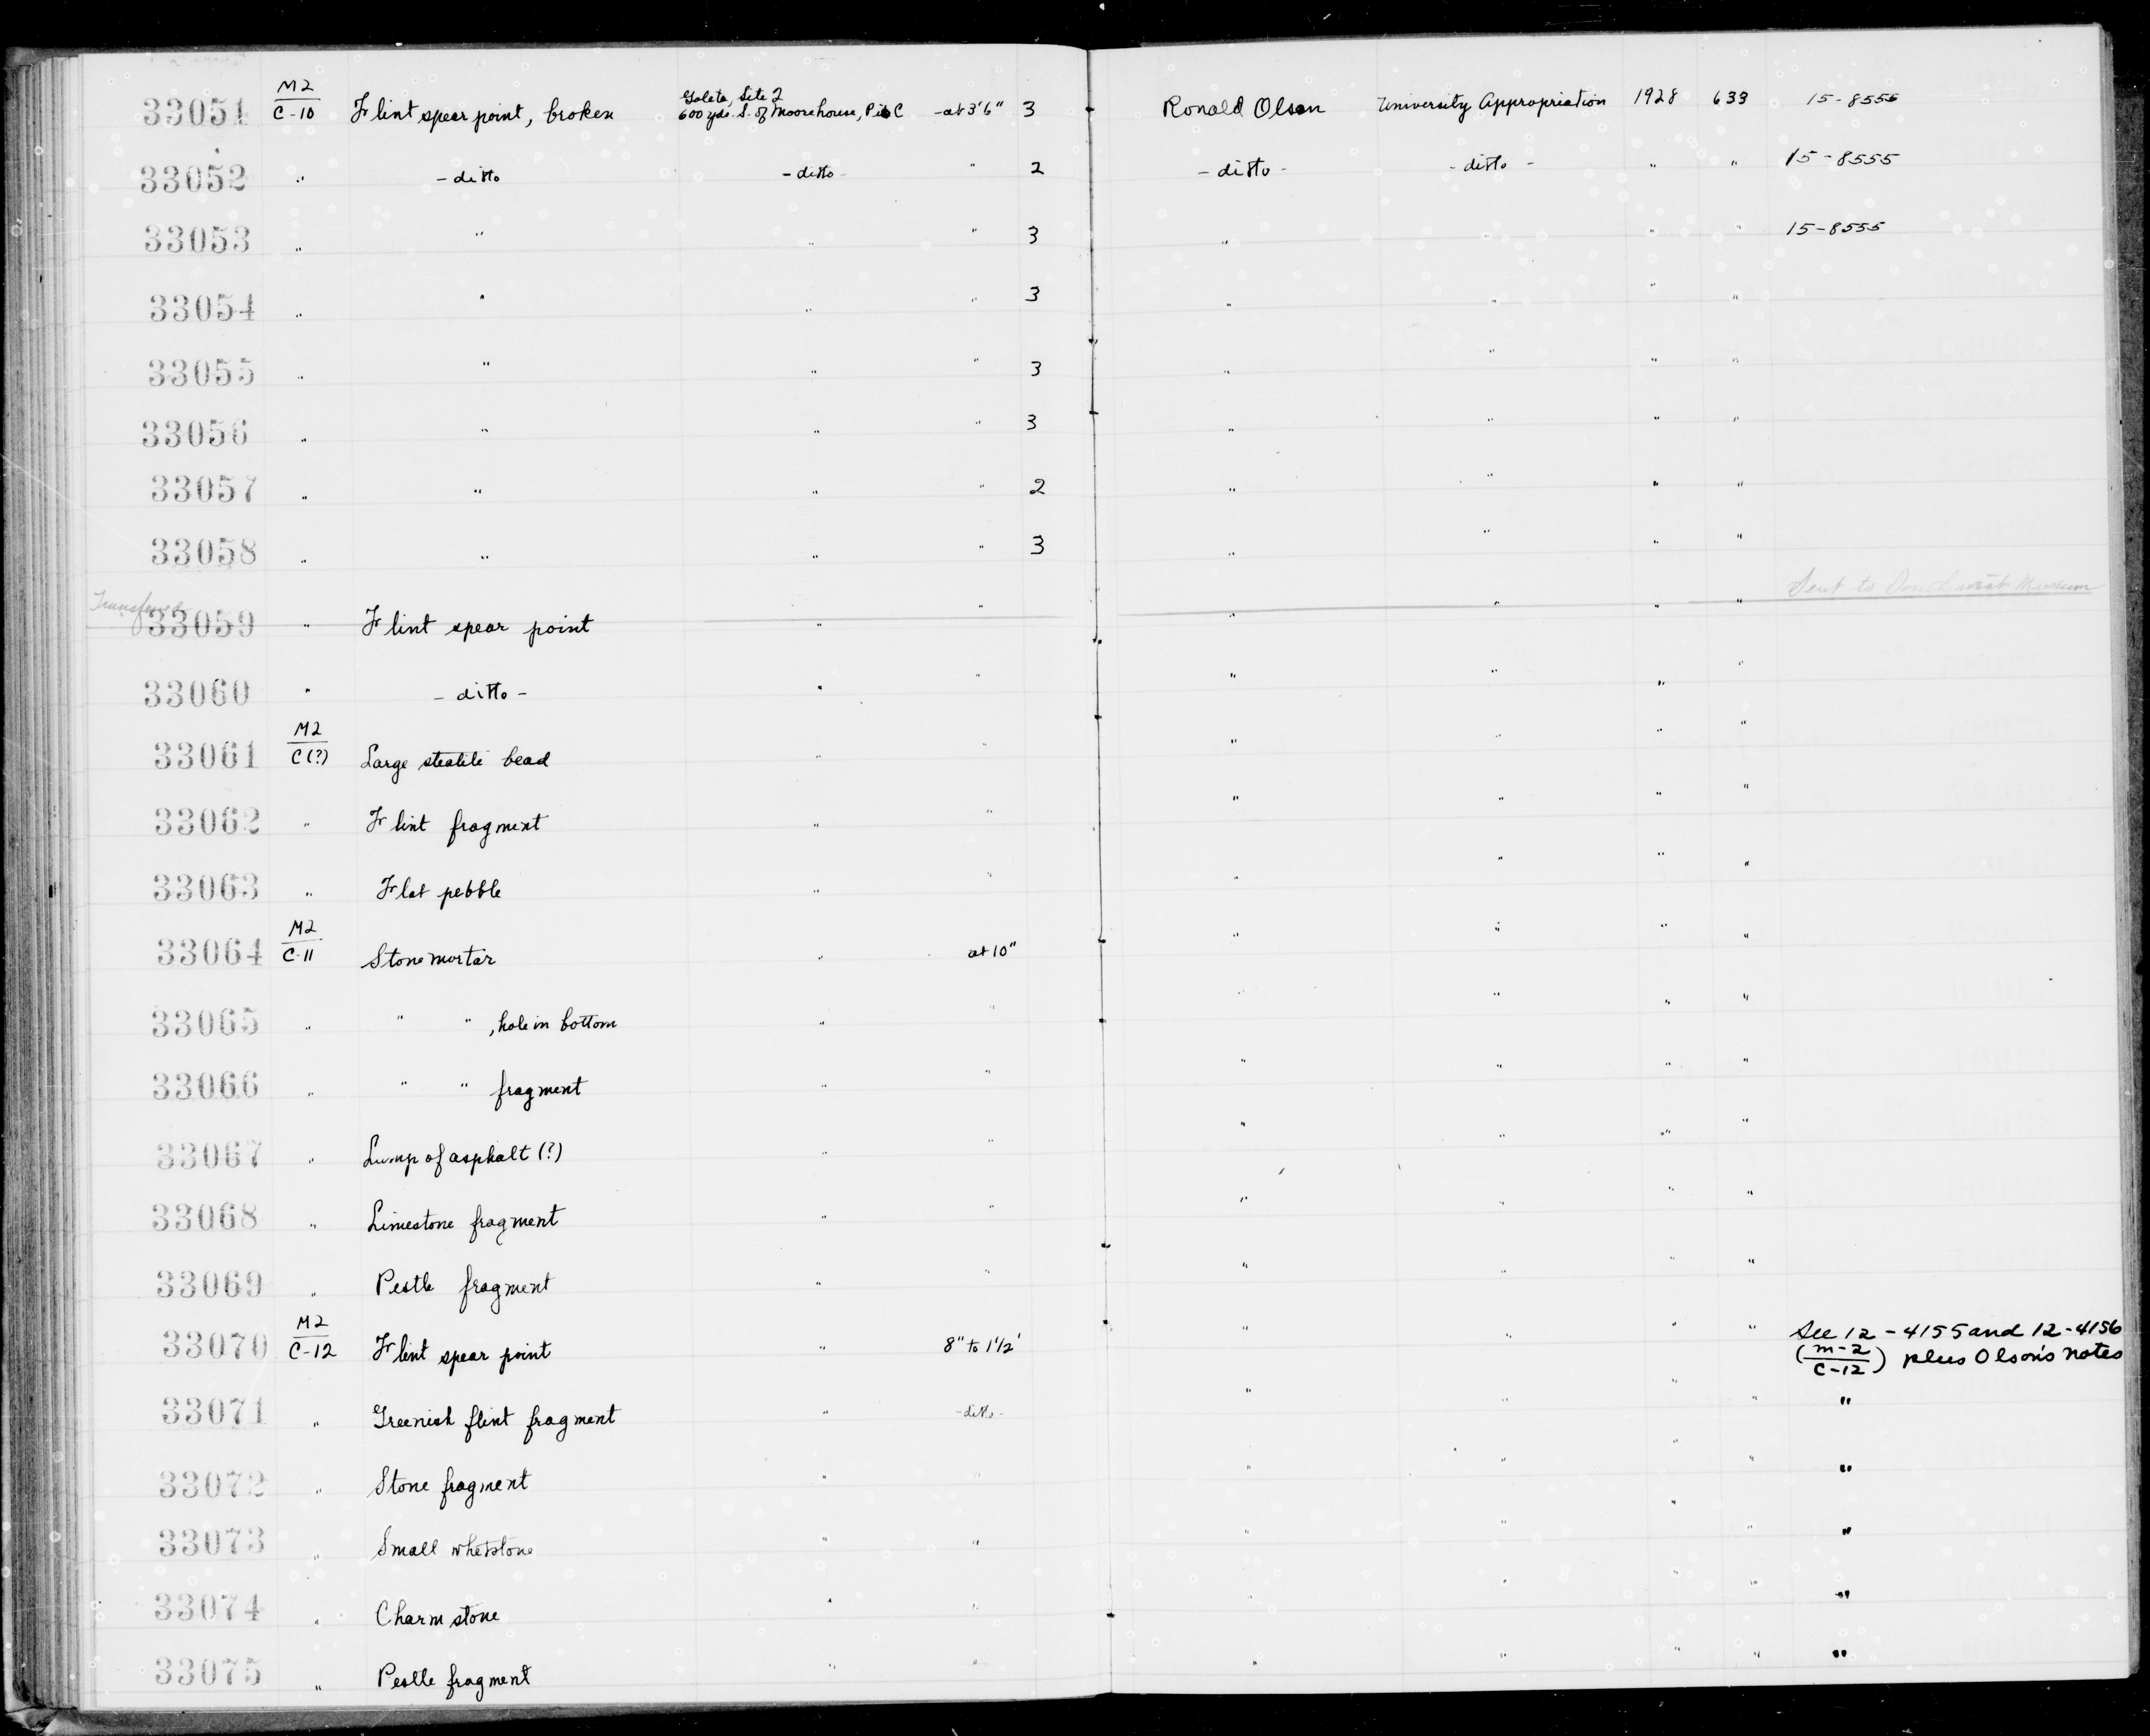 33051 M2/C-10 Flint spear point, broken Goleta, Site 2 600 yds. S. of Moorehouse, Pit C -at 3'6" 3 Ronald Olson University Appropriation 1928 633 15-8555
33052 " -ditto -ditto- " 2 -ditto- -ditto- " " 15-8555
33053 " " " " 3 " " " " 15-8555
33054 " " " " 3 " " " "
33055 " " " " 3 " " " "
33056 " " " " 3 " " " "
33057 " " " " 2 " " " "
33058 " " " " 3 " " " "
Transferred Sent to Southwest Museum
33059 " Flint spear point " " " " " "
33060 " -ditto- " " " " " "
33061 M2/C(?) Large steatite bead " " " " " "
33062 " Flint fragment " " " " " "
33063 " Flat pebble " " " " " "
33064 M2/C-11 Stone mortar " at 10" " " " "
33065 " " " , hole in bottom " " " " " "
33066 " " " fragment " " " " " "
33067 " Lump of asphalt (?) " " " " " "
33068 " Limestone fragment " " " " " "
33069 " Pestle fragment " " " " " "
33070 M2/C-12 Flint spear point " 8" to 1 1/2' " " " " See 12-4155 and 12-4156
(M-2/C-12) plus Olson's notes
33071 " Greenish flint fragment " -ditto- " " " " "
33072 " Stone fragment " " " " " " "
33073 " Small whetstone " " " " " " "
33074 " Charmstone " " " " " " "
33075 " Pestle fragment " " " " " " "